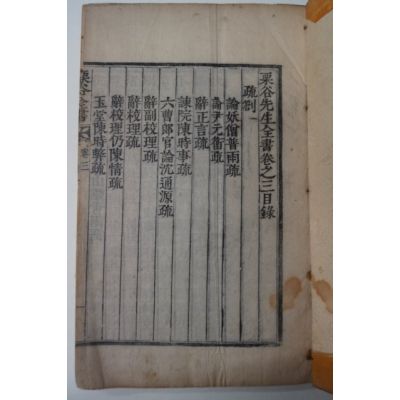 栗谷先生全書卷之三目錄
疏劄一
論妖僧普雨疏
論尹元衡疏
辭正言疏
諫院陳時事疏
六曹郞官論沈通源疏
辭副校理疏
辭校理疏
辭校理仍陳情疏
玉堂陳時弊疏
栗谷全書 卷三